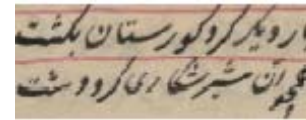 بار دیگر گرد کورستان بگشت
همچو آن شیر شکاری گرد دشت